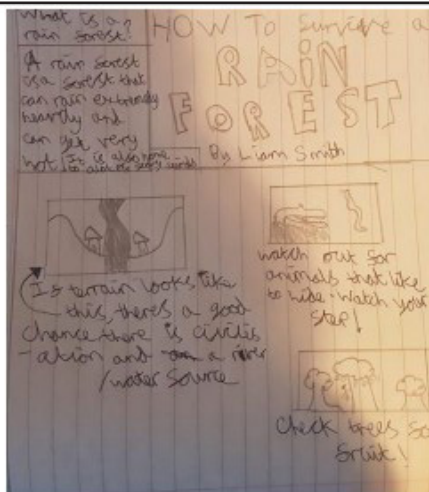 What is a
rain forest?
A rain forest
is a forest that
can rain extremly
heavily and
can get very
hot. It is also home
HOW To Survive a
RAiN
FOREST
By Liam Smith
If terrain looks like
this, there's a good
chance there is civilis
-ation and a river
/water source
watch out for
animals that like
to hide. Watch your
step!
Check trees fo
fruit!